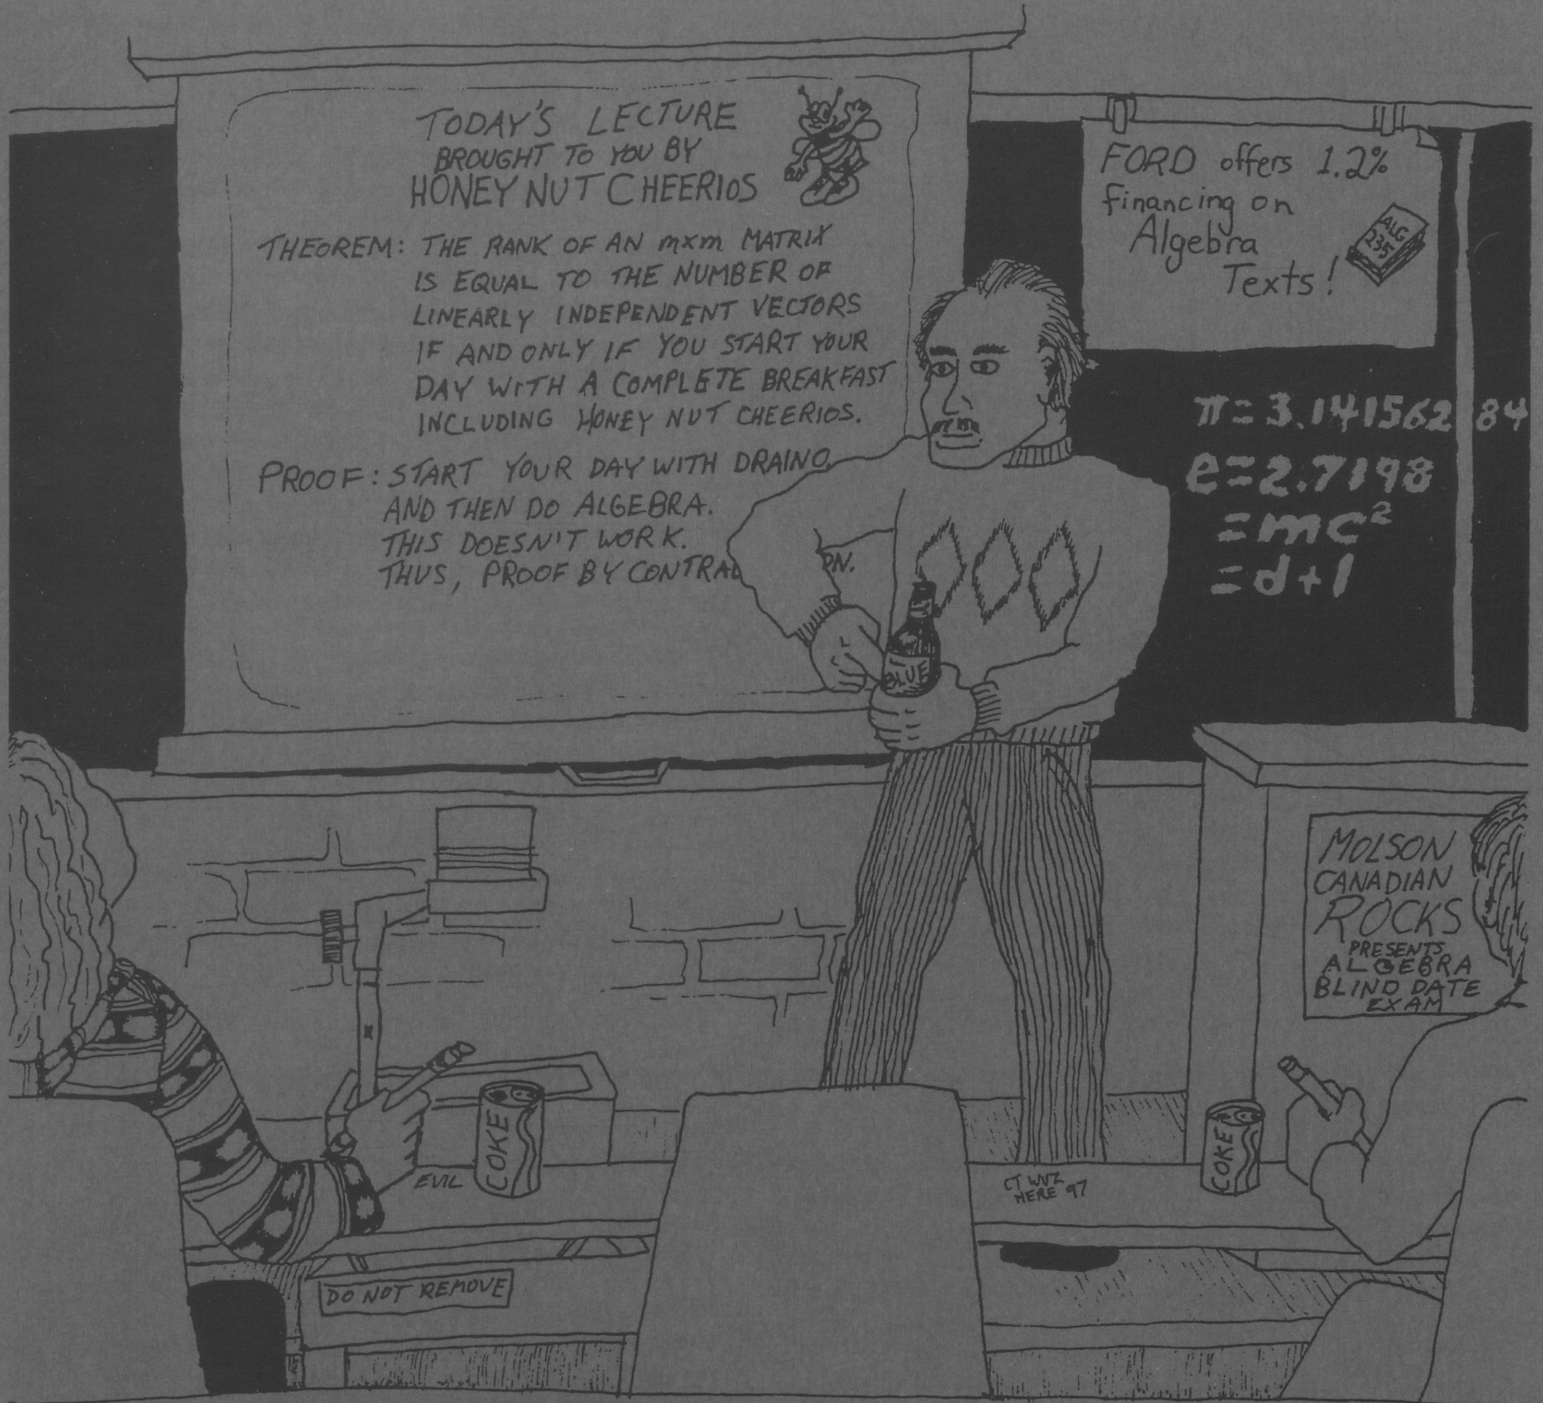 TODAY'S LECTURE
BROUGHT TO YOU BY
HONEY NUT CHEERIOS
THEOREM: THE RANK OF AN mxm MATRIX
IS EQUAL TO THE NUMBER OF
LINEARLY INDEPENDENT VECTORS
IF AND ONLY IF YOU START YOUR
DAY WITH A COMPLETE BREAKFAST
INCLUDING HONEY NUT CHEERIOS.
PROOF: START YOUR DAY WITH DRAINO
AND THEN DO ALGEBRA.
THIS DOESN'T WORK.
THUS, PROOF BY CONTRAD ON.
FORD offers 1.2%
financing on
Algebra
Texts!
π=3.14156284
e=2.7198
=mc²
=d+1
MOLSON
CANADIAN
ROCKS
PRESENTS
ALGEBRA
BLIND DATE
EXAM
COKE
COKE
EVIL
CT WUZ
HERE '97
DO NOT REMOVE